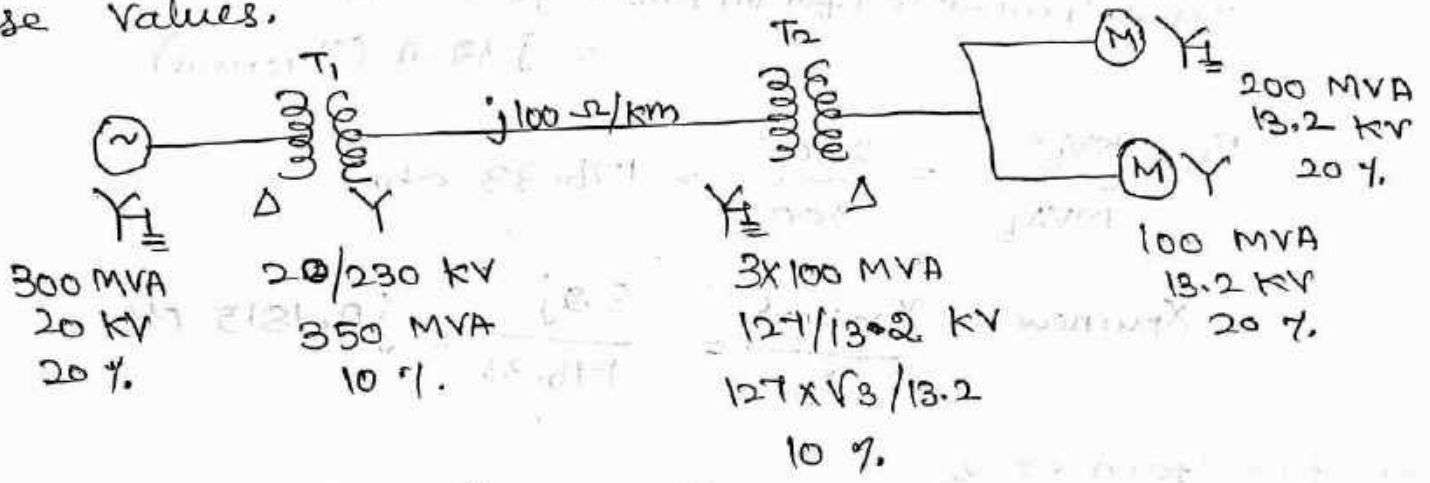 se values.
T1
T2
j100 Ω/km
M
M
~
Δ Y
Y Δ
Y
Y
Y
200 MVA
13.2 KV
20 %.
100 MVA
13.2 KV
20 %.
300 MVA
20 KV
20 %.
20/230 KV
350 MVA
10 %.
3X100 MVA
127/13.2 KV
127X√3/13.2
10 %.